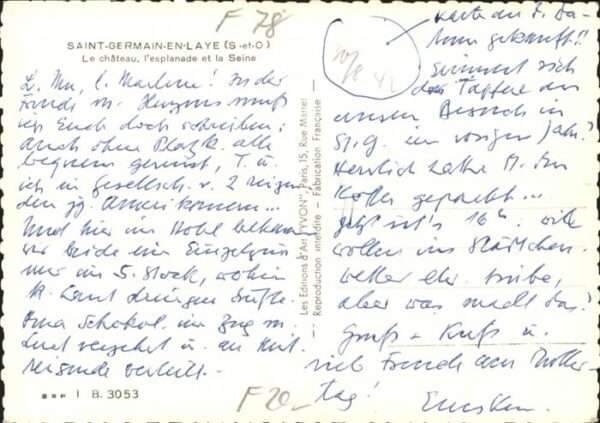 F 78
SAINT-GERMAIN-EN-LAYE (S-et-O)
Le château, l'esplanade et la Seine
L. Mu, l. Marlene! In der
Freude m. Herzens muß
ich Euch doch schreiben:
auch ohne Platzk. alle
bequem gereist, T. u.
ich in Gesellsch. v. 2
den jg. Amerikanern...
Und hier im Hotel bekamen
wir beide ein
nur im 5. Stock, wohin
k. Laut dringen dürfte.
Oma Schokol. im Zug m.
Lust verzehrt u. an
verteilt. -
I B. 3053
F 20.-
Les Editions d'Art "YVON", Paris, 15, Rue Martel
Reproduction interdite - Fabrication Française
Karte am
gekauft!!
erinnert sich
das Tapfere an
unsern Besuch in
St. G. im vorigen Jahr?
Herrlich hatte M. den
Koffer gepackt...
jetzt ist's 16h, wir
wollen ins Städtchen.
Wetter eher trübe,
aber was macht das?
Gruß + Kuß u.
viel Freude am Mutter-
tag!